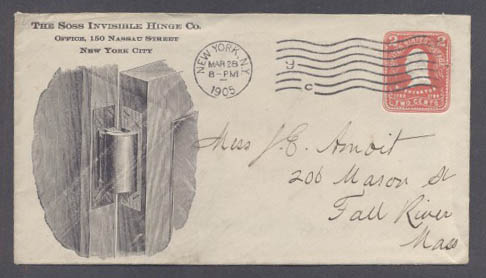 THE SOSS INVISIBLE HINGE CO.
OFFICE, 150 NASSAU STREET
NEW YORK CITY
NEW YORK, N.Y.
MAR 28
8-PM
1905
y
c
2 2
TWO CENTS
Miss J. E. Amoit
206 Mason St
Fall River
Mass